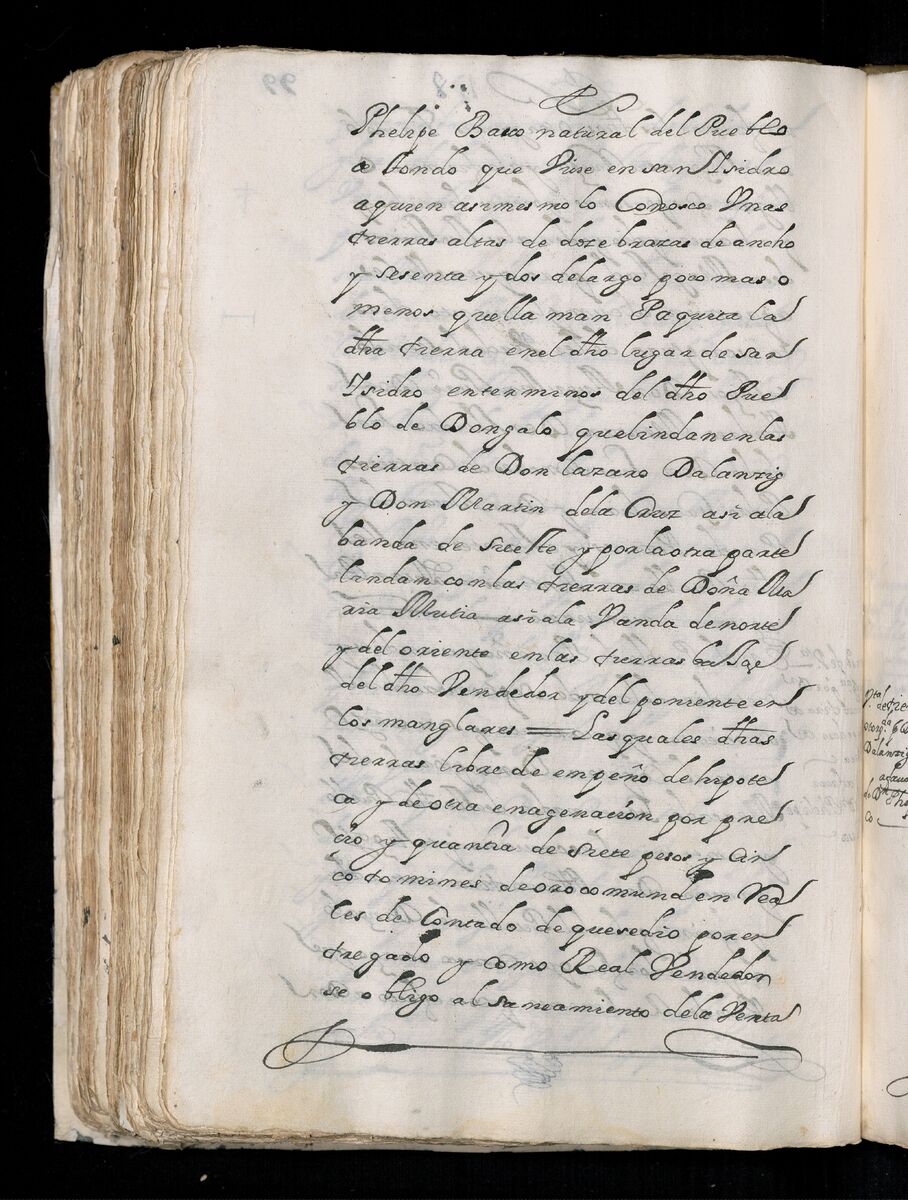 Phelipe Baxo natural del Pueblo
de tondo que Viue en san Ysidro
aquien asimesmo lo Conosco Vnas
tierras altas de doze brazas de ancho
y sesenta y dos delargo poco mas o
menos quella man Paquita la
dha tierra enel dho lugar de san
Ysidro enterminos del dho Pue
blo de Dongalo quelindan enlas
tierras de Don lazaro Dalanzig
y Don Martin dela Cruz asi ala
banda de sueste y porlaotra parte
lindan con las tierras de Doña Ma
ria Mutia asi ala Vanda denorte
y del oriente enlas tierras
del dho Vendedor y del poniente en
los manglares = Las quales dhas
tierras libre de empeño de hipote
ca y de otra enagenación por pre
cio y quantia de siete pesos y Cin
co tomines deorocomund en Rea
les de Contado dequesedio por en
tregado y como Real Vendedor
se obligo al saneamiento dela Venta